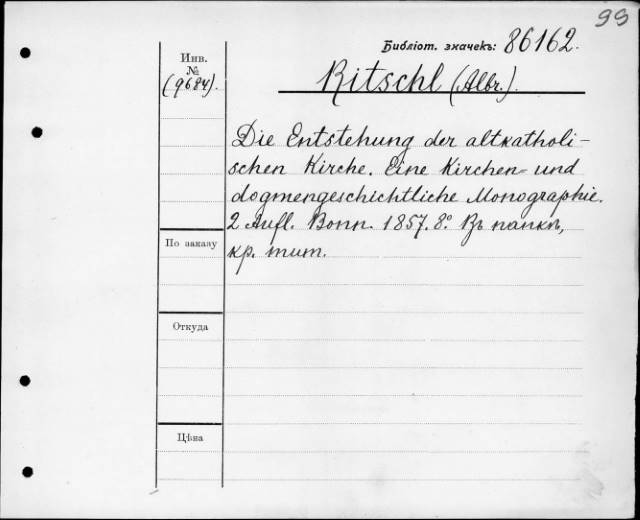 99
Библіот. значекъ: 86162.
Инв.
№
(9684).
Ritschl (Albr.).
Die Entstehung der altkatholi-
schen Kirche. Eine Kirchen- und
dogmengeschichtliche Monographie.
2 Aufl. Bonn. 1857. 8º. Въ папкѣ,
кр. тит.
По заказу
Откуда
Цѣна